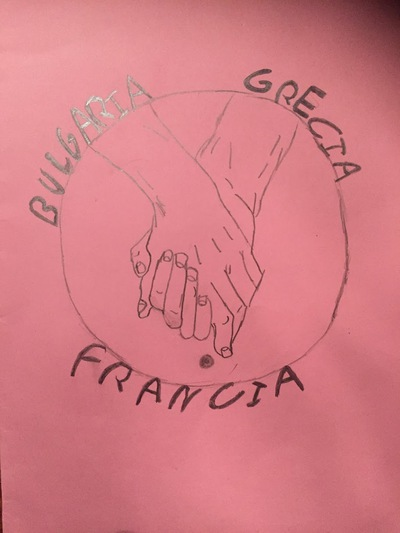 BULGARIA
GRECIA
FRANCIA